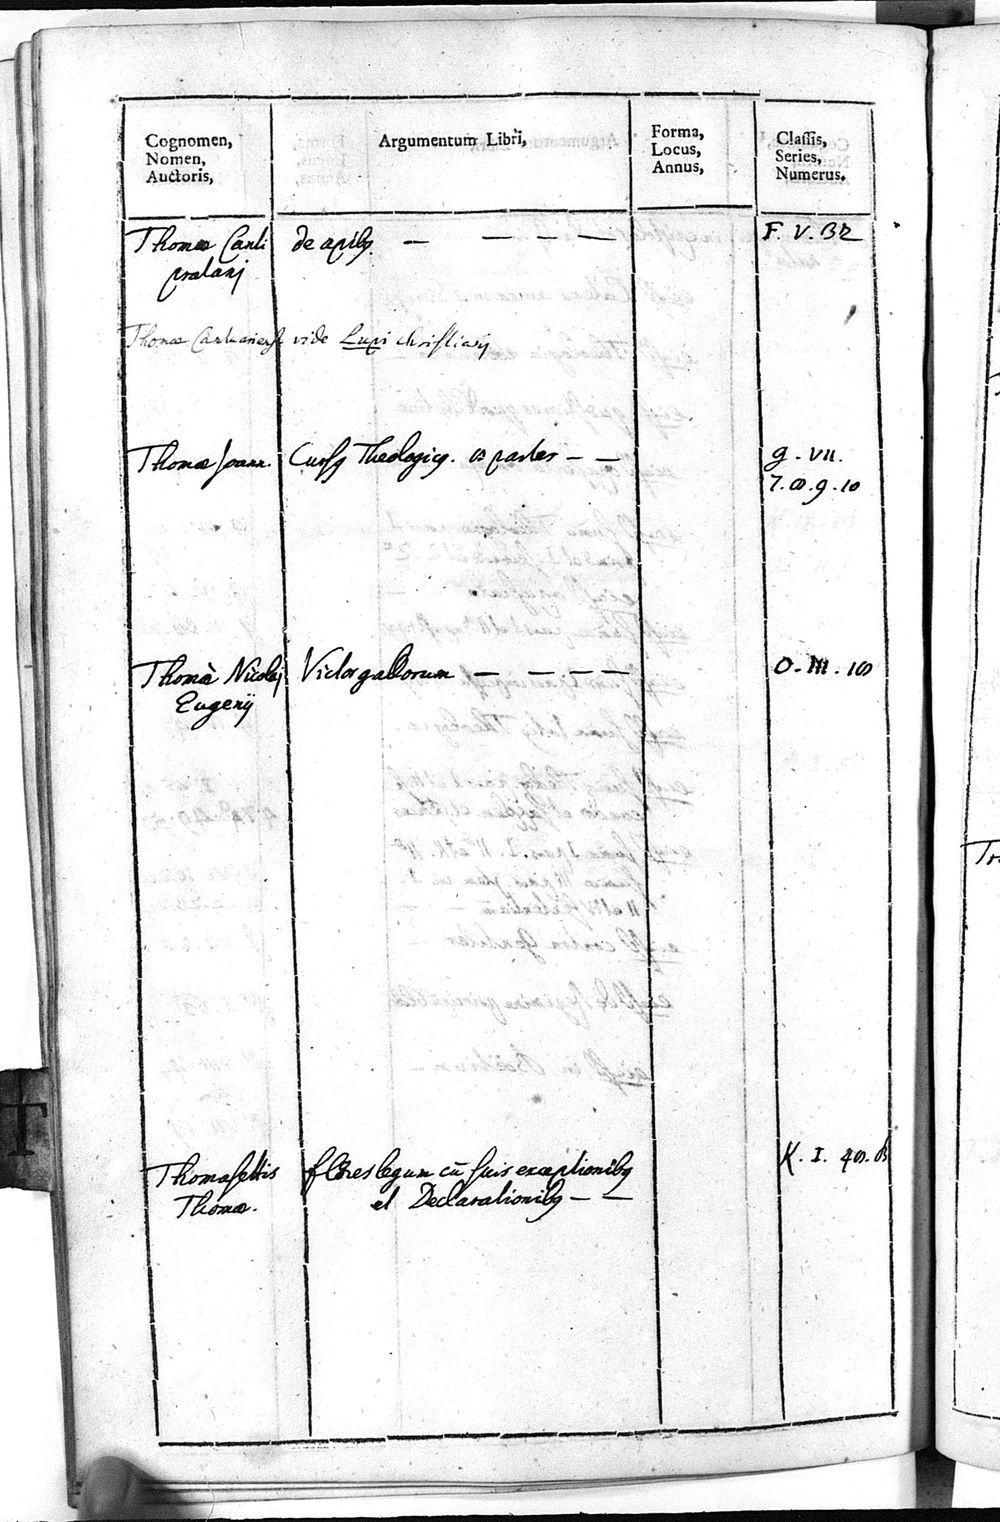 Cognomen,
Nomen,
Auctoris,
Argumentum Libri,
Forma,
Locus,
Annus,
Classis,
Series,
Numerus.
Thomæ Canti
pratani
de apibꝫ — — — —
F. V. 32
Thomæ Cantuariensis vide Lupi christiani
Thomæ Joann.
Cursꝫ Theologicꝫ. 8 partes — —
g. VII.
7. 8. 9. 10
Thomà Nicolaj
Eugenij
Victor gallorum — — — —
O. III. 18
Thomasettis
Thomæ.
flores legum cū suis exceptionibꝫ
et Declarationibꝫ — —
K. I. 48.
T